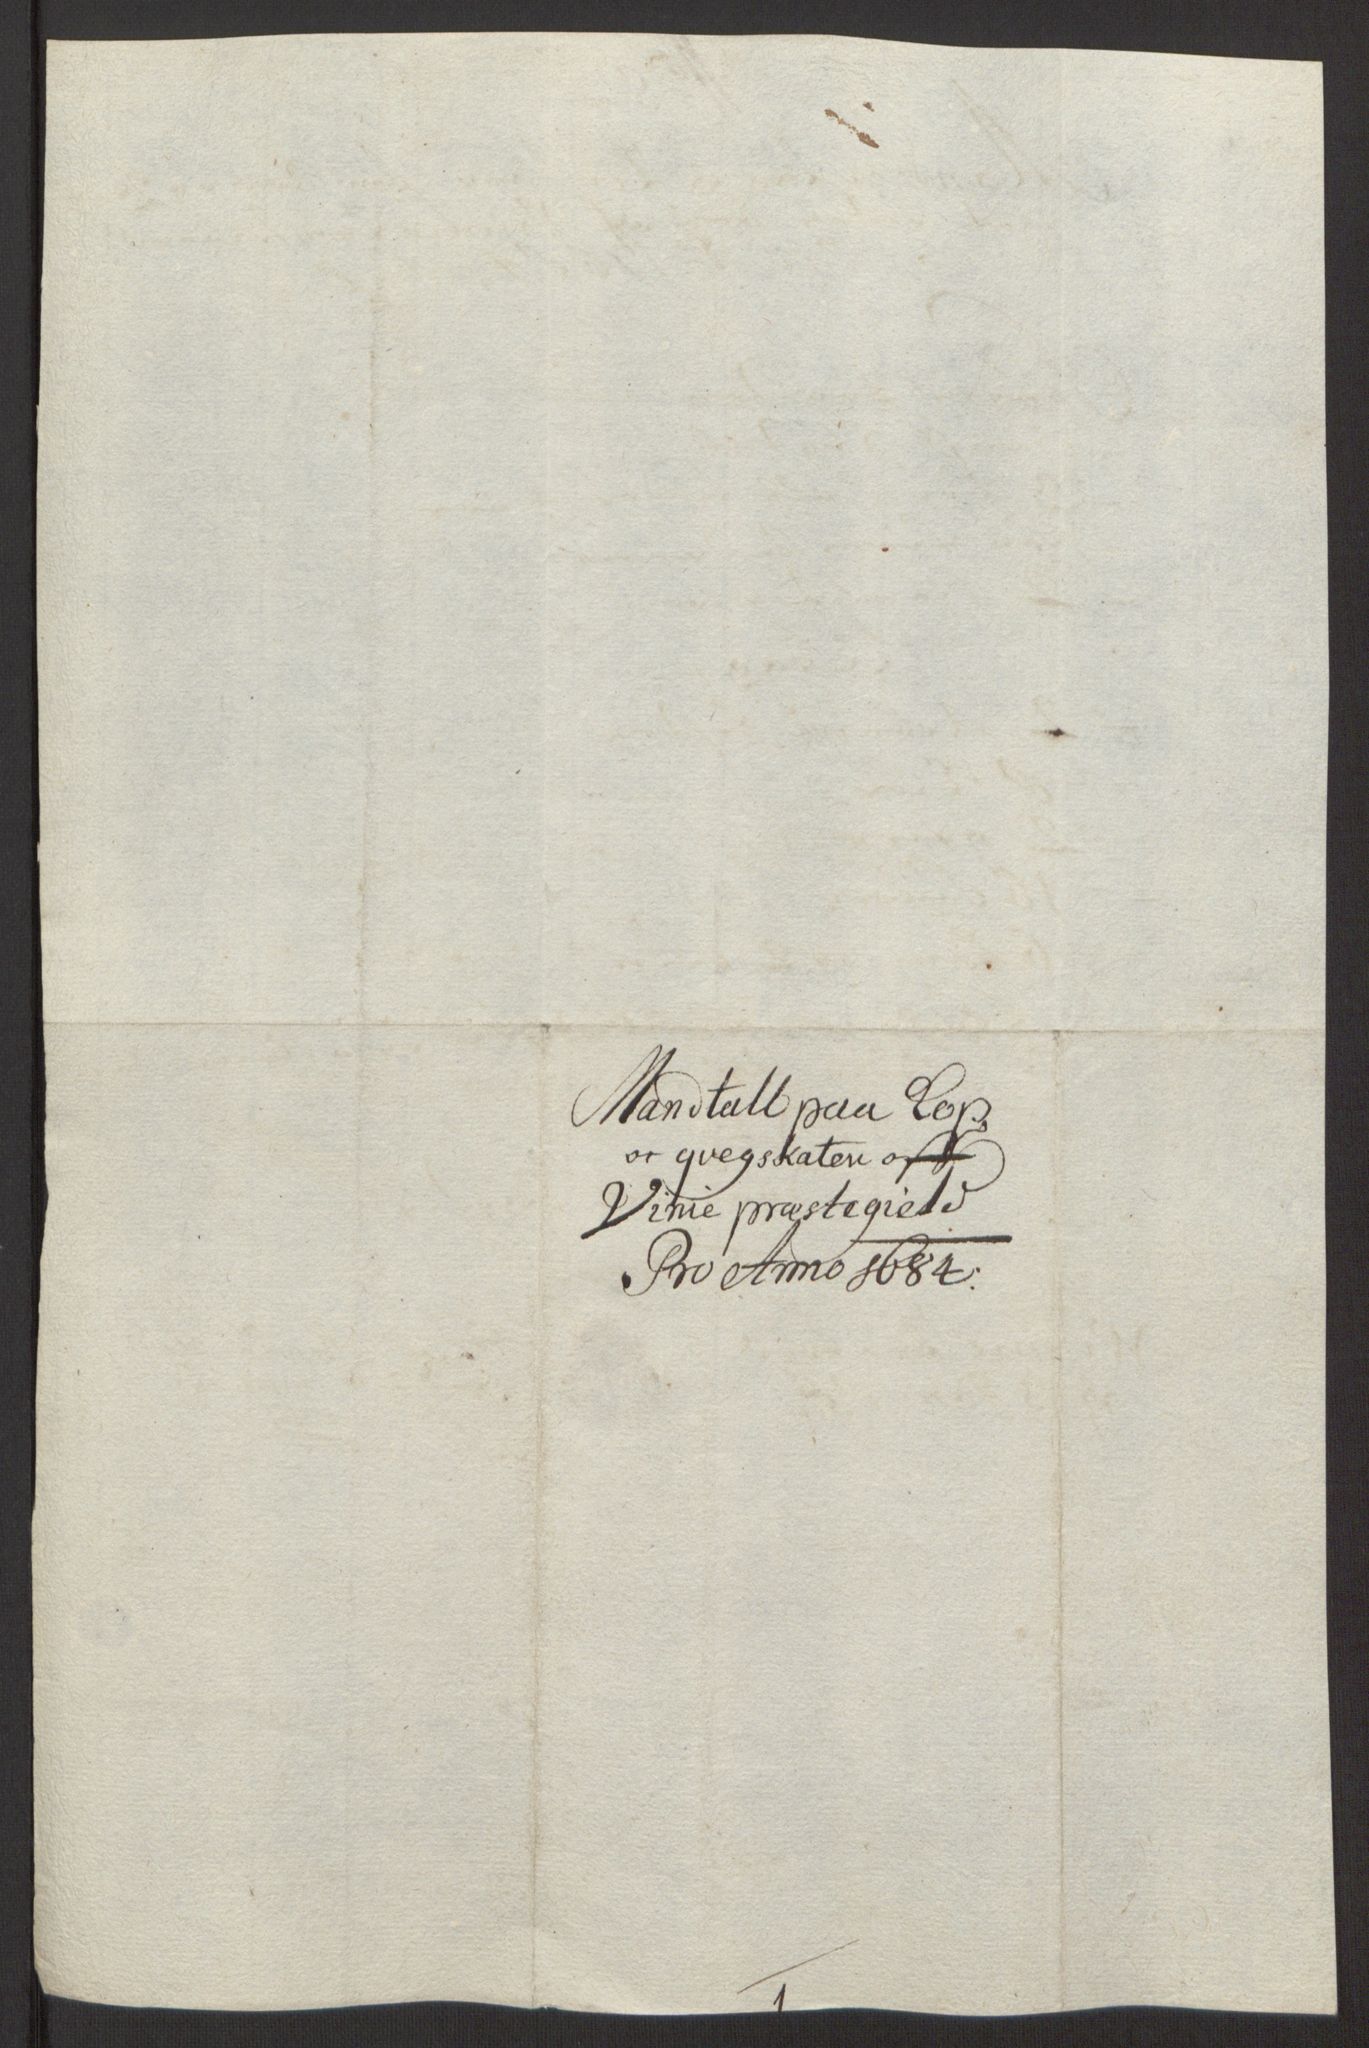 Mandtall paa Kop
oc qvegskaten off
Vinie præstegield
Pro Anno 1684.
1